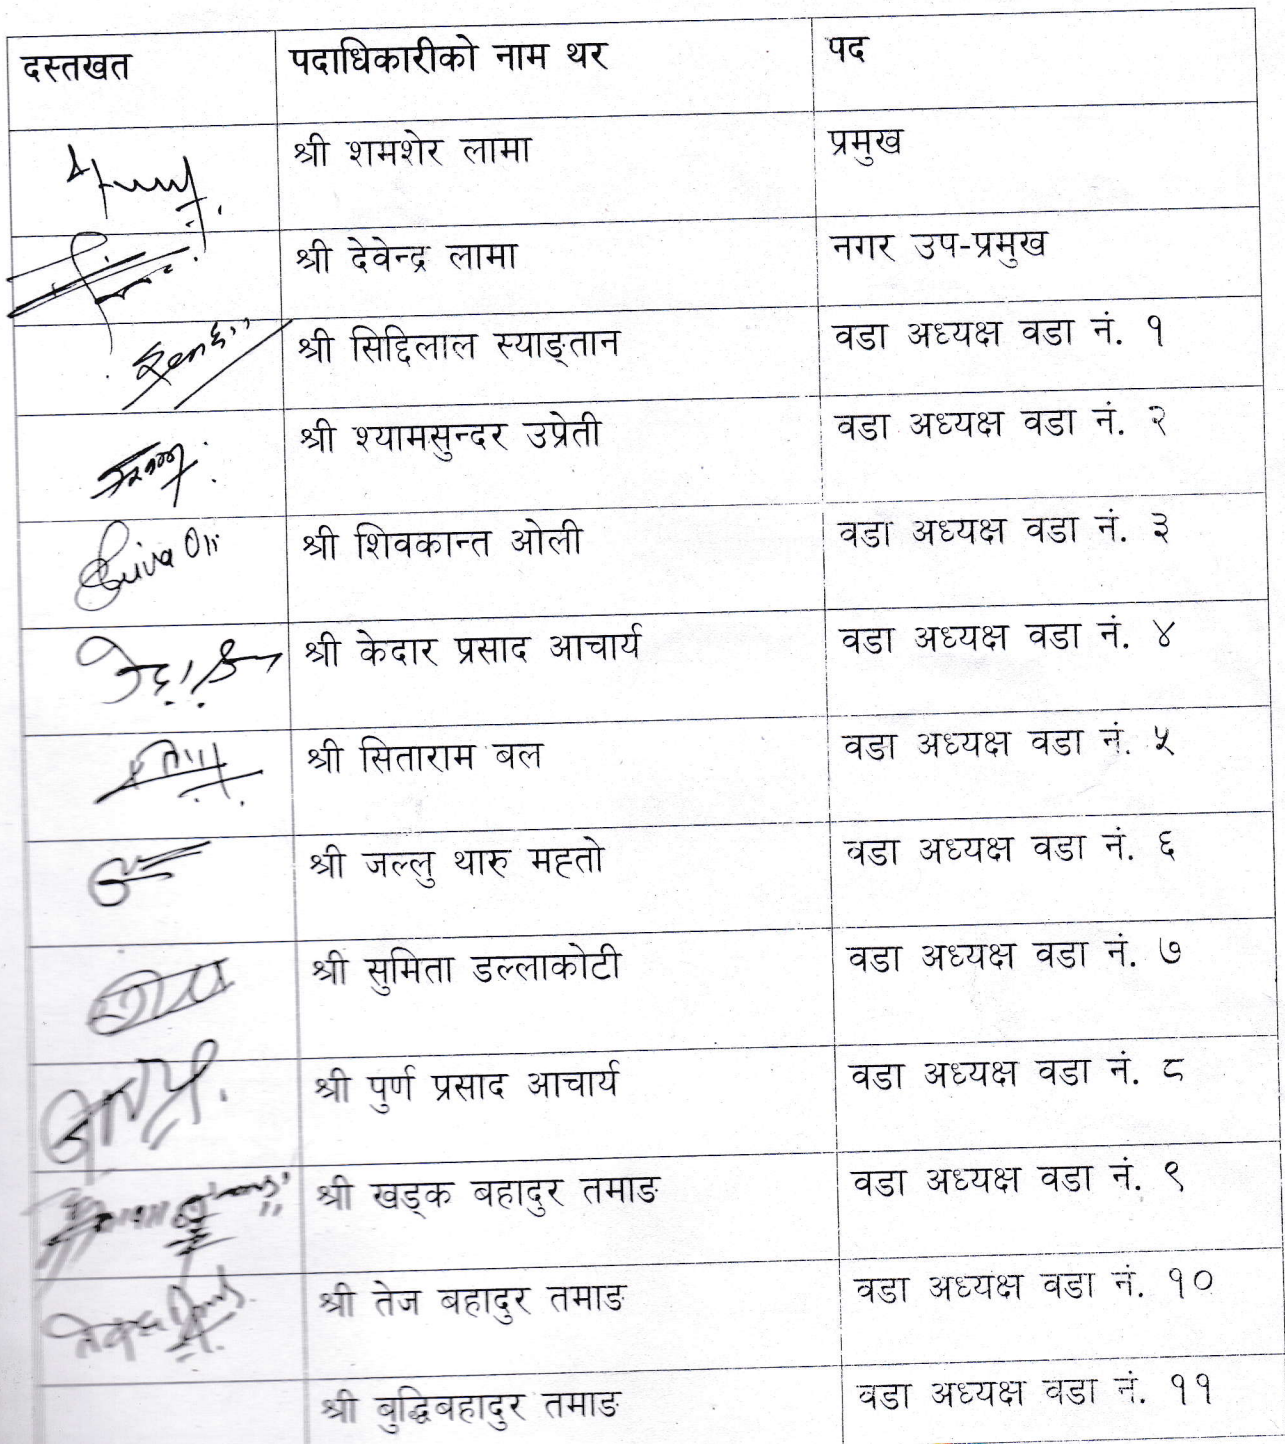 दस्तखत पदाधिकारीको नाम थर पद
श्री शमशेर लामा प्रमुख
श्री देवेन्द्र लामा नगर उप-प्रमुख
श्री सिद्दिलाल स्याङ्तान वडा अध्यक्ष वडा नं. १
श्री श्यामसुन्दर उप्रेती वडा अध्यक्ष वडा नं. २
Shiva Oli श्री शिवकान्त ओली वडा अध्यक्ष वडा नं. ३
श्री केदार प्रसाद आचार्य वडा अध्यक्ष वडा नं. ४
श्री सिताराम बल वडा अध्यक्ष वडा नं. ५
श्री जल्लु थारु महतो वडा अध्यक्ष वडा नं. ६
श्री सुमिता डल्लाकोटी वडा अध्यक्ष वडा नं. ७
श्री पुर्ण प्रसाद आचार्य वडा अध्यक्ष वडा नं. ८
श्री खड्क बहादुर तमाङ वडा अध्यक्ष वडा नं. ९
श्री तेज बहादुर तमाङ वडा अध्यक्ष वडा नं. १०
श्री बुद्धिबहादुर तमाङ वडा अध्यक्ष वडा नं. ११